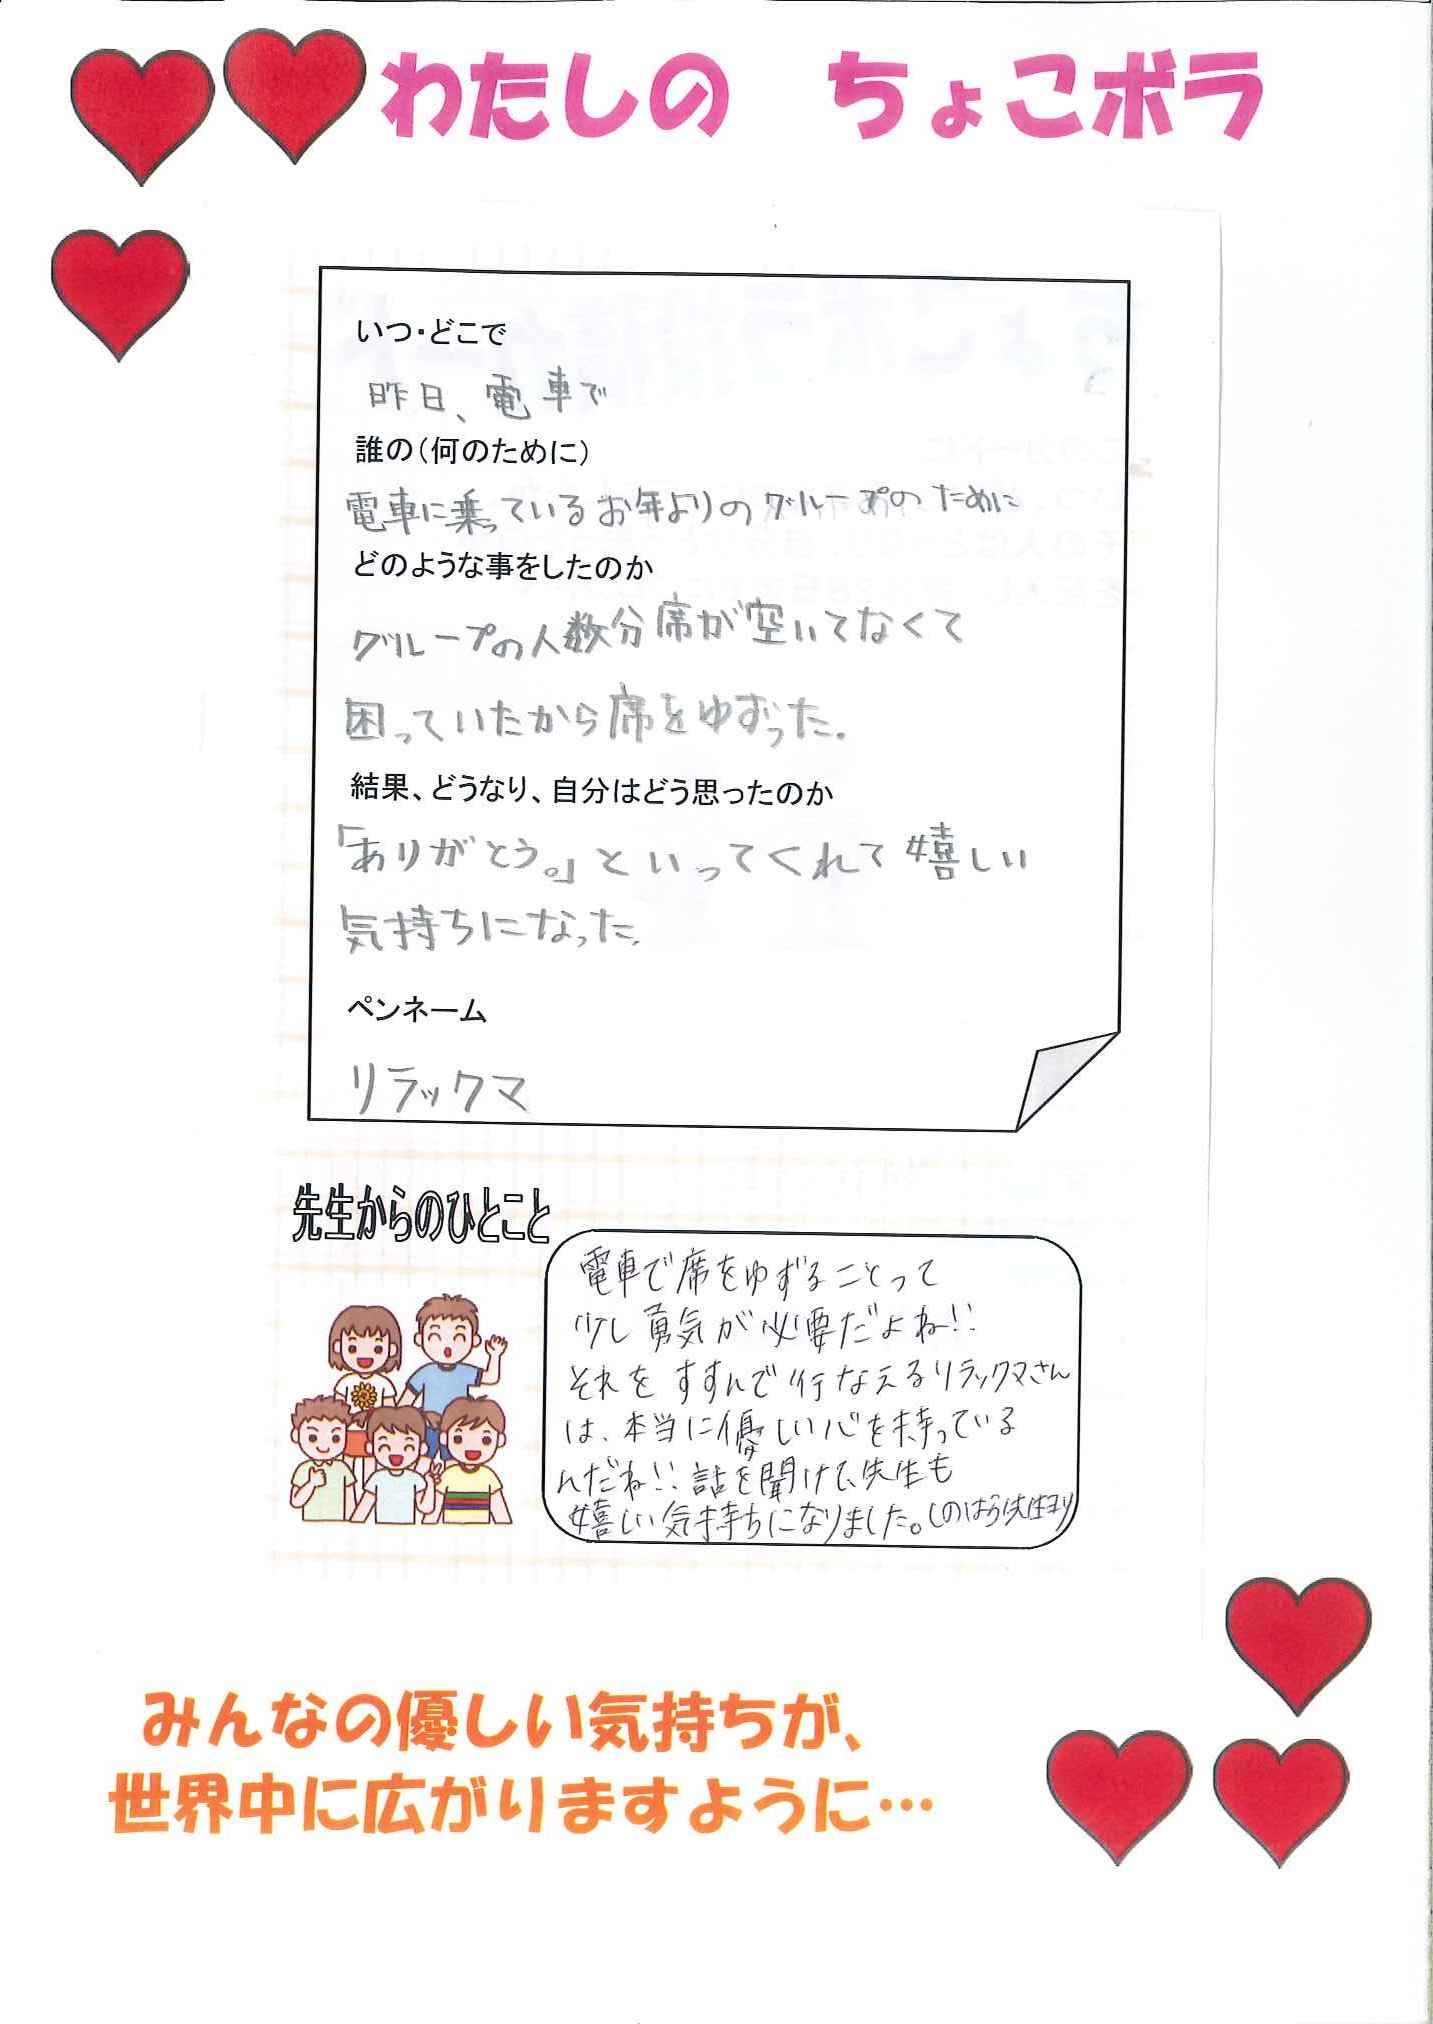 わたしの ちょこボラ
いつ・どこで
昨日、電車で
誰の(何のために)
電車に乗っているお年よりのグループのために
どのような事をしたのか
グループの人数分席が空いてなくて
困っていたから席をゆずった。
結果、どうなり、自分はどう思ったのか
「ありがとう。」といってくれて嬉しい
気持ちになった。
ペンネーム
リラックマ
先生からのひとこと
電車で席をゆずることって
少し勇気が必要だよね!!
それをすすんで行なえるリラックマさん
は、本当に優しい心を持っている
んだね!!話を聞けて、先生も
嬉しい気持ちになりました。(しのはら先生より)
みんなの優しい気持ちが、
世界中に広がりますように…